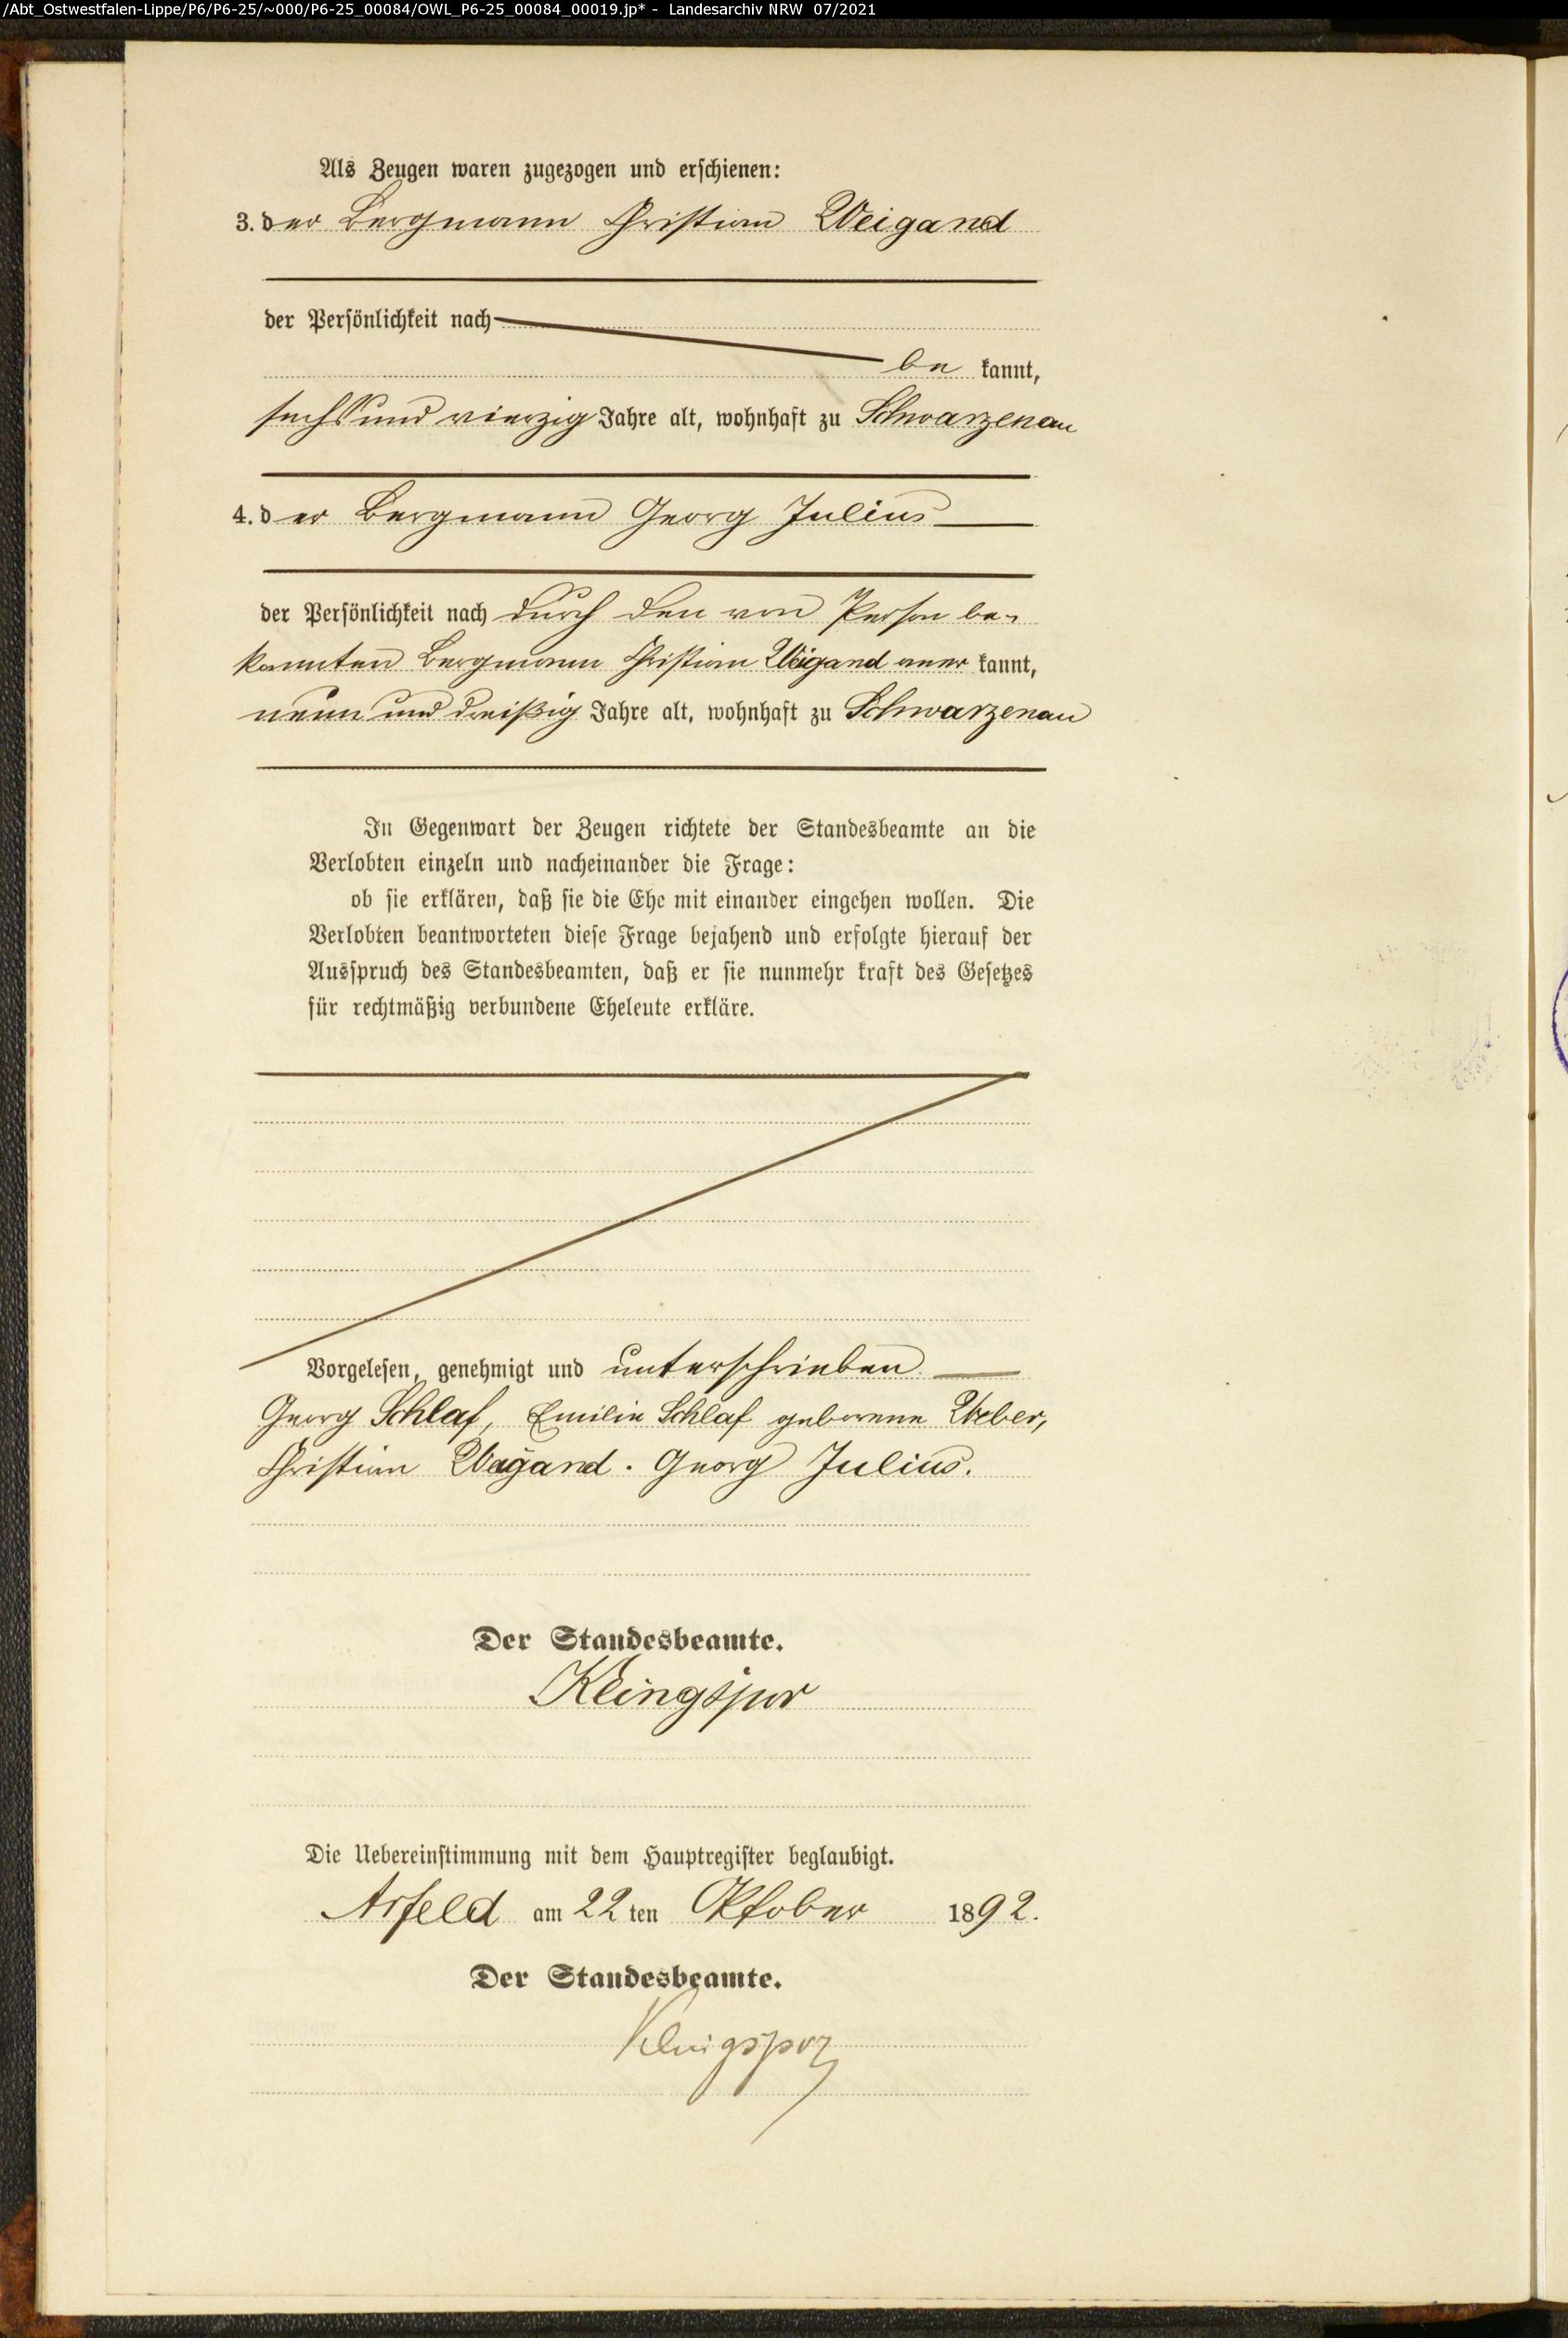 /Abt_Ostwestfalen-Lippe/P6/P6-25/~000/P6-25_00084/OWL_P6-25_00084_00019.jp* - Landesarchiv NRW 07/2021
Als Zeugen waren zugezogen und erschienen:
3. der Bergmann Christian Weigand
der Persönlichkeit nach
be kannt,
sechs und vierzig Jahre alt, wohnhaft zu Schwarzenau
4. der Bergmann Georg Julius
der Persönlichkeit nach durch den von Person be-
kannten Bergmann Christian Weigand aner kannt,
neun und dreißig Jahre alt, wohnhaft zu Schwarzenau
In Gegenwart der Zeugen richtete der Standesbeamte an die
Verlobten einzeln und nacheinander die Frage:
ob sie erklären, daß sie die Ehe mit einander eingehen wollen. Die
Verlobten beantworteten diese Frage bejahend und erfolgte hierauf der
Ausspruch des Standesbeamten, daß er sie nunmehr kraft des Gesetzes
für rechtmäßig verbundene Eheleute erkläre.
Vorgelesen, genehmigt und unterschrieben.
Georg Schlaf, Emilie Schlaf geborene Weber,
Christian Weigand. Georg Julius.
Der Standesbeamte.
Klingspor
Die Uebereinstimmung mit dem Hauptregister beglaubigt.
Arfeld am 22 ten Oktober 1892.
Der Standesbeamte.
Klingspor